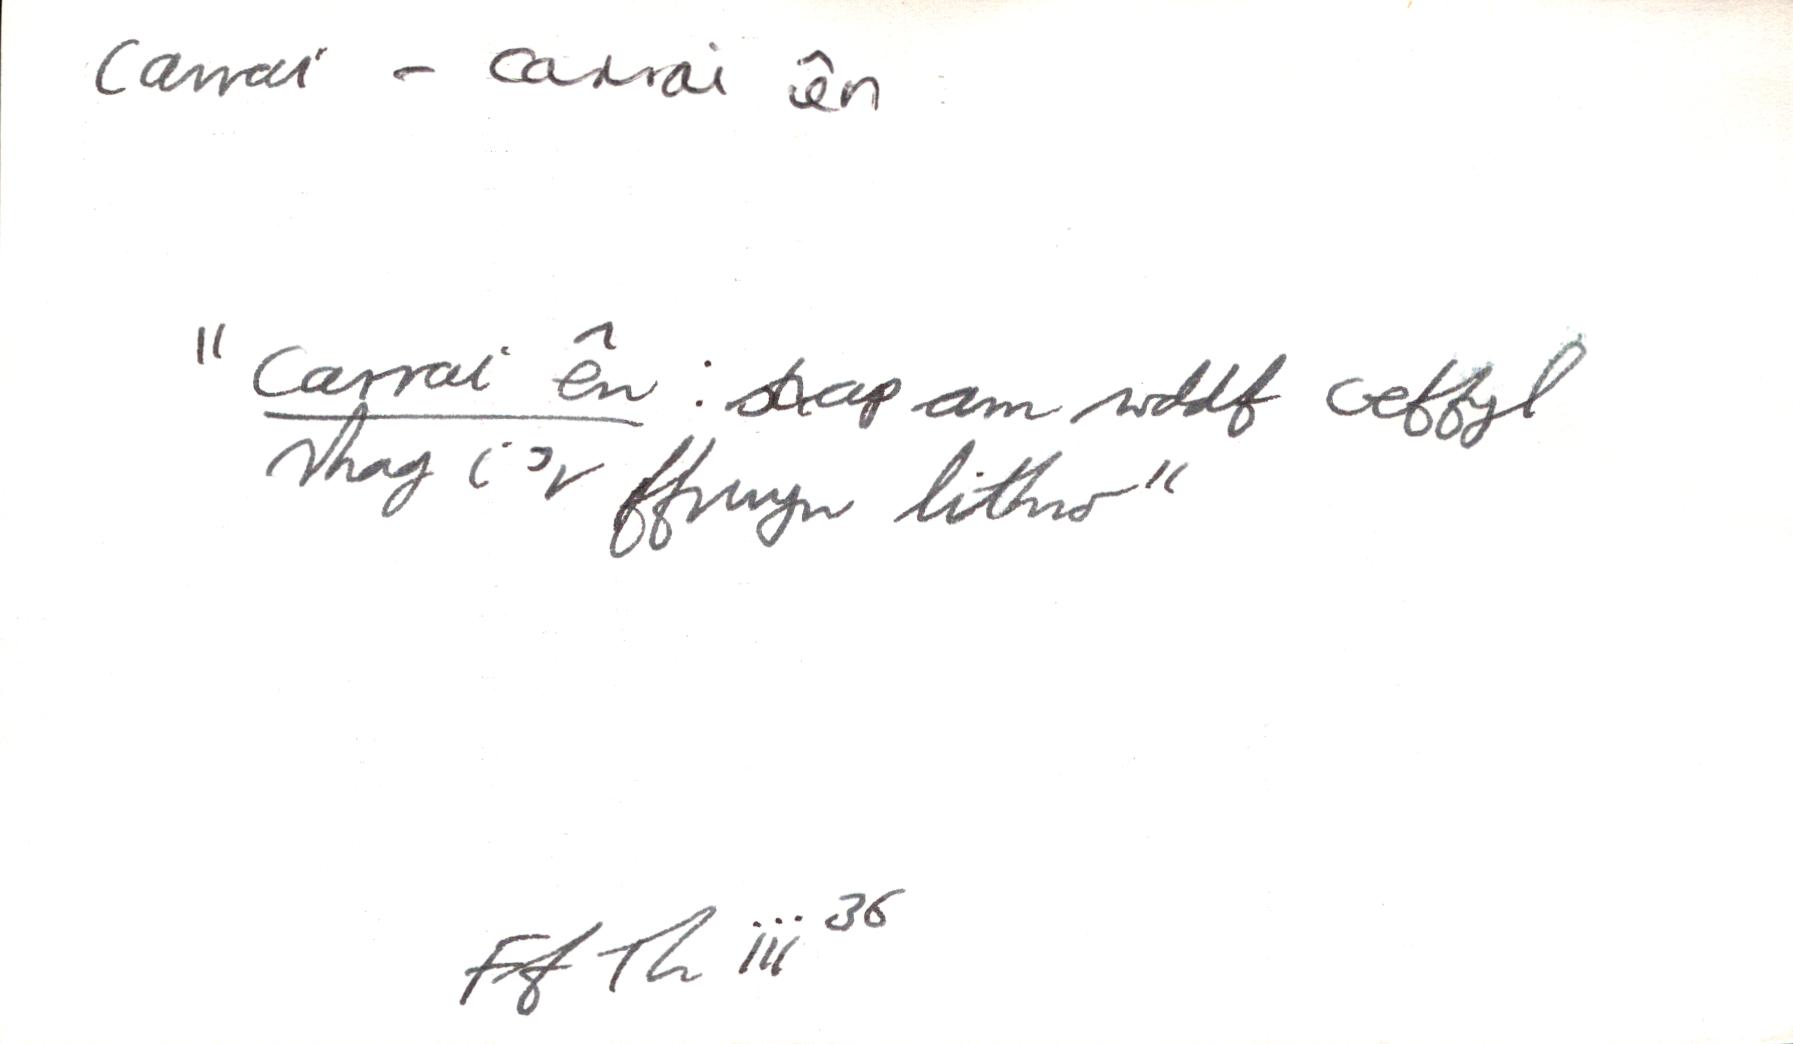 Carrai - carrai ên
"Carrai ên : strap am wddf ceffyl
rhag i'r ffrwyn lithro"
Ff Th iii 36